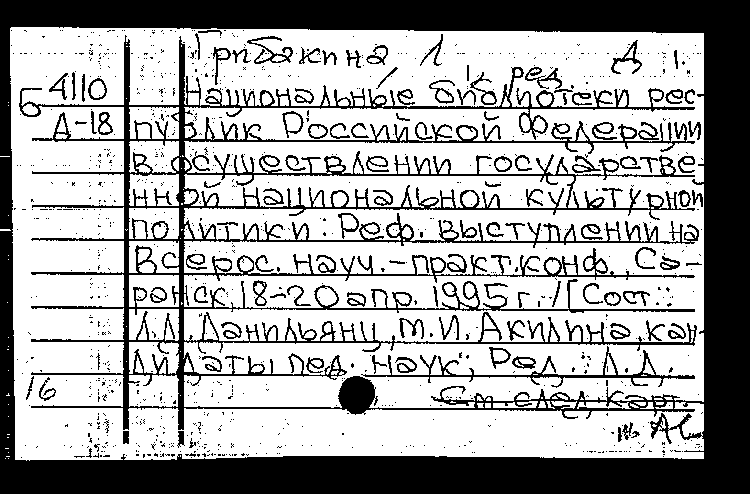 Грибакина Л Д 1.
ред
Б 4110 Национальные библиотеки рес-
Д-18 публик Российской Федерации
в осуществлении государстве-
нной национальной культурной
политики: Реф. выступлений на
Всерос. науч.-практ. конф., Са-
ранск, 18-20 апр. 1995 г. / [Сост.:
Л.Д. Данильянц, М.И. Акилина, кан-
дидаты пед. наук; Ред.: Л.Д.
16 См. след. карт.